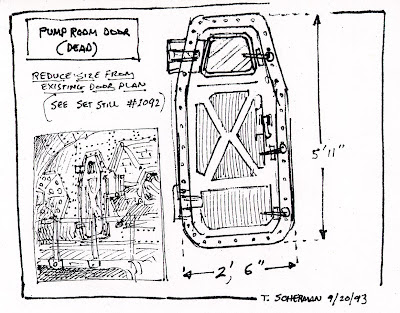 PUMP ROOM DOOR
(DEAD)
REDUCE SIZE FROM
EXISTING DOOR PLAN
(SEE SET STILL #1092)
5'11"
2', 6"
T. SCHERMAN 9/20/93